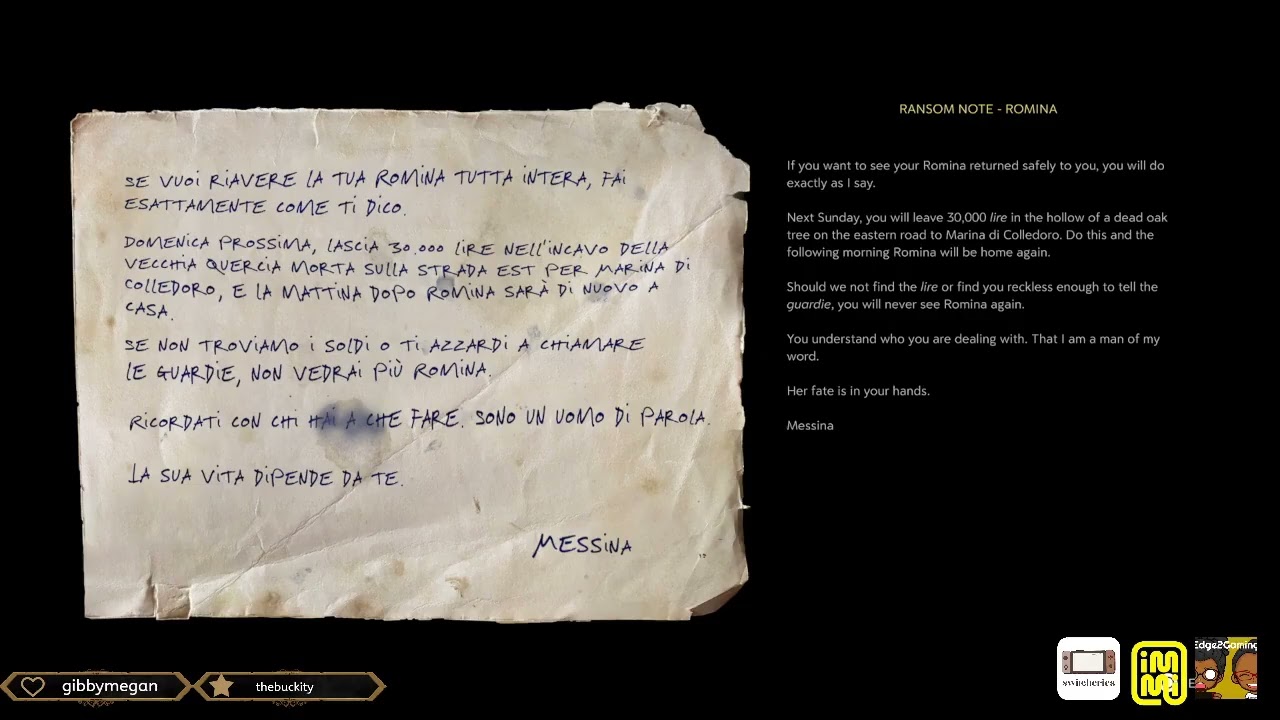 SE VUOI RIAVERE LA TUA ROMINA TUTTA INTERA, FAI
ESATTAMENTE COME TI DICO.
DOMENICA PROSSIMA, LASCIA 30.000 LIRE NELL'INCAVO DELLA
VECCHIA QUERCIA MORTA SULLA STRADA EST PER MARINA DI
COLLEDORO, E LA MATTINA DOPO ROMINA SARÀ DI NUOVO A
CASA.
SE NON TROVIAMO I SOLDI O TI AZZARDI A CHIAMARE
LE GUARDIE, NON VEDRAI PIÙ ROMINA.
RICORDATI CON CHI HAI A CHE FARE. SONO UN UOMO DI PAROLA.
LA SUA VITA DIPENDE DA TE.
MESSINA
RANSOM NOTE - ROMINA
If you want to see your Romina returned safely to you, you will do
exactly as I say.
Next Sunday, you will leave 30,000 lire in the hollow of a dead oak
tree on the eastern road to Marina di Colledoro. Do this and the
following morning Romina will be home again.
Should we not find the lire or find you reckless enough to tell the
guardie, you will never see Romina again.
You understand who you are dealing with. That I am a man of my
word.
Her fate is in your hands.
Messina
gibbymegan
thebuckity
switcheries
iMMJ
Edge2Gaming